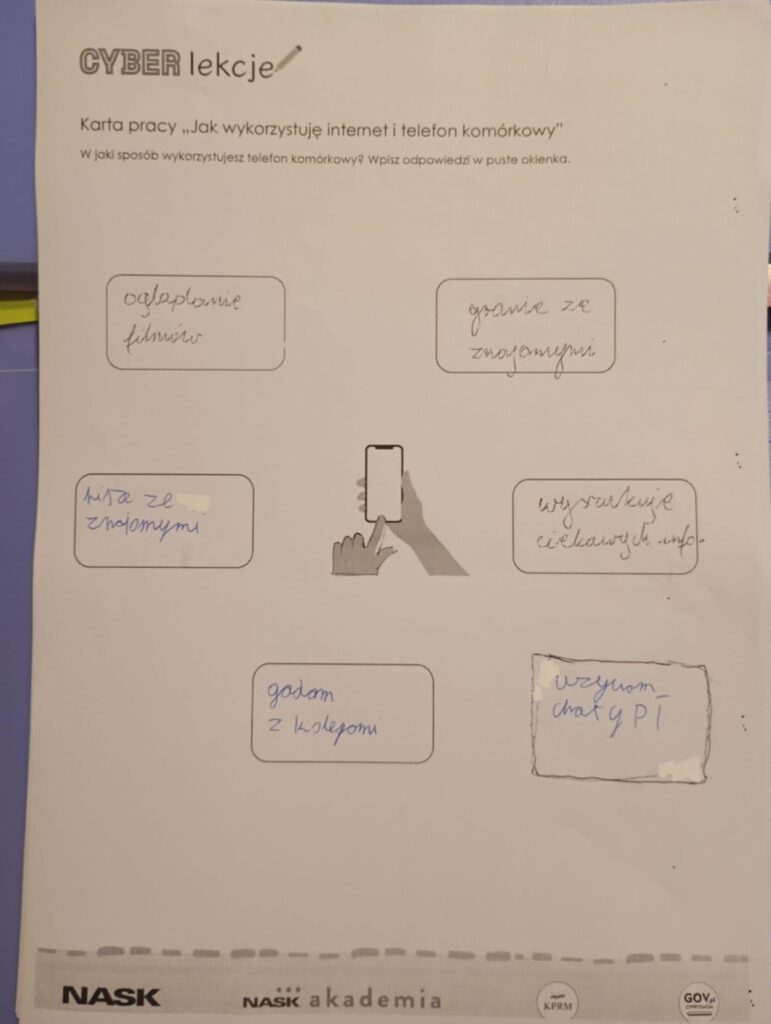 CYBER lekcje
Karta pracy „Jak wykorzystuję internet i telefon komórkowy”
W jaki sposób wykorzystujesz telefon komórkowy? Wpisz odpowiedzi w puste okienka.
oglądanie
filmów
granie ze
znajomymi
ze
znajomymi
wyszukuję
ciekawych info.
gadam
z kolegami
używam
chatgPT
NASK
NASK akademia
KPRM
GOV.pl
CYFRYZACJA